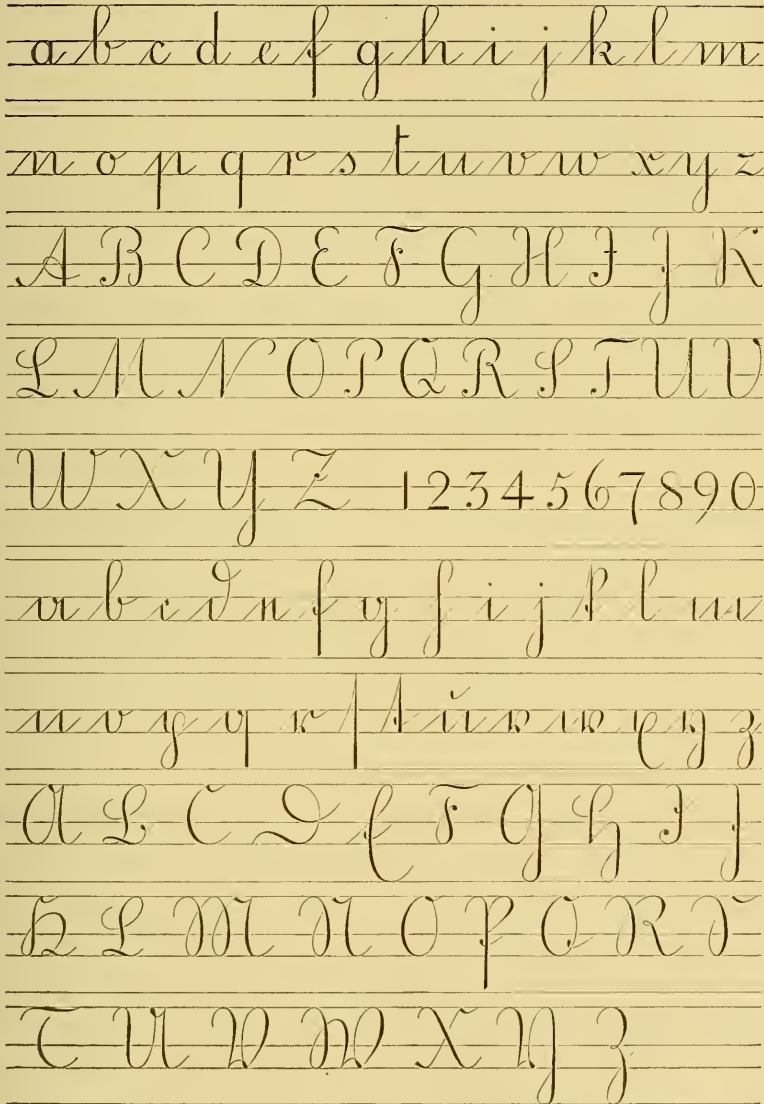 a b c d e f g h i j k l m
n o p q r s t u v w x y z
A B C D E F G H I J K
L M N O P Q R S T U V
W X Y Z 1 2 3 4 5 6 7 8 9 0
a b c d e f g h i j k l m
n o p q r s t u v w x y z
A B C D E F G H I J
K L M N O P Q R S
T U V W X Y Z